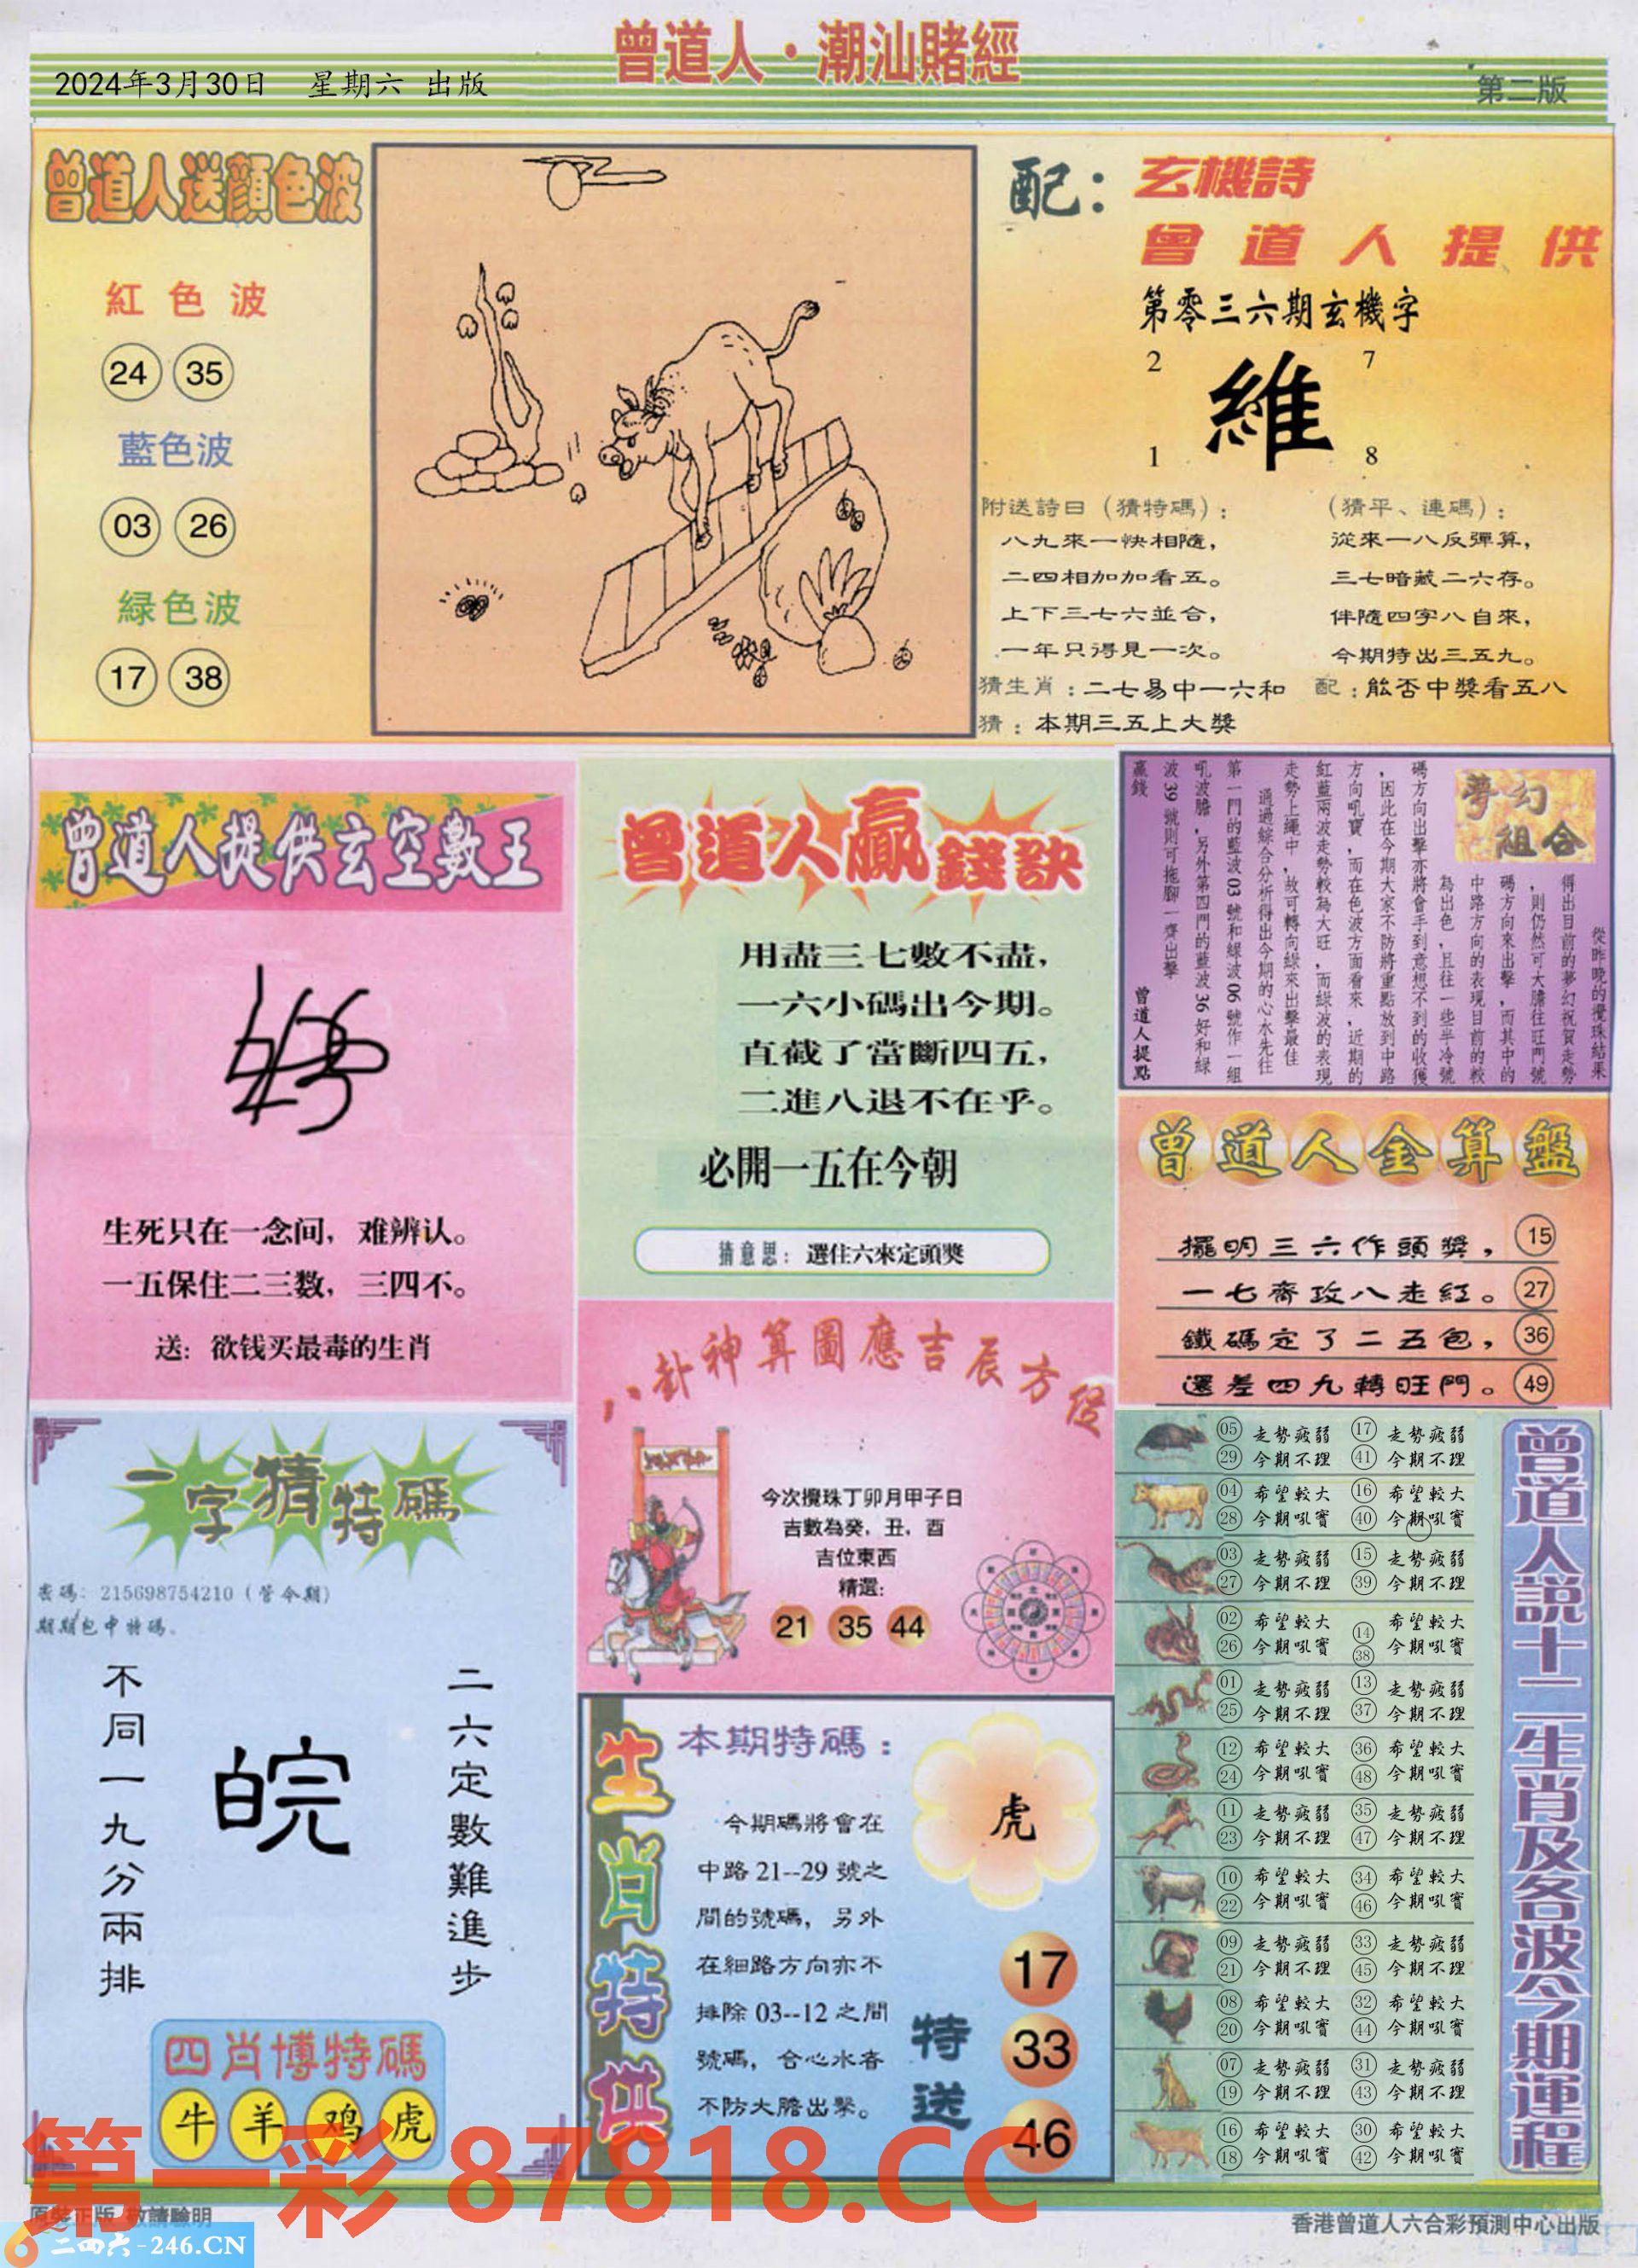 曾道人·潮汕賭經
2024年3月30日 星期六 出版
第二版
曾道人送顔色波
紅色波
24 35
藍色波
03 26
緑色波
17 38
配：玄機詩
曾道人提供
第零三六期玄機字
2 7
維
1 8
附送詩曰（猜特碼）：
八九來一快相隨，
二四相加加看五。
上下三七六並合，
一年只得見一次。
（猜平、連碼）：
從來一八反彈算，
三七暗藏二六存。
伴隨四字八自來，
今期特出三五九。
猜生肖：二七易中一六和
配：能否中獎看五八
猜：本期三五上大獎
曾道人提供玄空數王
生死只在一念间，难辨认。
一五保住二三数，三四不。
送：欲钱买最毒的生肖
曾道人贏錢訣
用盡三七數不盡，
一六小碼出今期。
直截了當斷四五，
二進八退不在乎。
必開一五在今朝
猜意思：選住六來定頭獎
夢幻組合
從昨晚的攪珠結果
得出目前的夢幻祝賀走勢
，則仍然可大膽往旺門號
碼方向來出擊，而其中的
中路方向的表現目前的較
為出色，且往一些半冷號
碼方向出擊亦將會手到意想不到的收獲
，因此在今期大家不防將重點放到中路
方向吼寶，而在色波方面看來，近期的
紅藍兩波走勢較為大旺，而綠波的表現
走勢上繩中，故可轉向綠來出擊最佳
通過綜合分析得出今期的心水先往
第一門的藍波03號和綠波06號作一組
吼波膽，另外第四門的藍波36好和綠
波39號則可拖腳一齊出擊
贏錢
曾道人提點
曾道人金算盤
擺明三六作頭獎，15
一七齊攻八走紅。27
鐵碼定了二五包，36
還差四九轉旺門。49
八卦神算圖應吉辰方位
今次攪珠丁卯月甲子日
吉數為癸，丑，酉
吉位東西
精選:
21 35 44
一字猜特碼
密碼：215698754210（管今期）
期期包中特碼。
二六定數難進步
皖
不同一九分兩排
四肖博特碼
牛 羊 鸡 虎
生肖特供
本期特碼：
今期碼將會在
中路21--29號之
間的號碼，另外
在細路方向亦不
排除03--12之間
號碼，合心水者
不防大膽出擊。
虎
特送
17
33
46
曾道人說十二生肖及各波今期運程
05 走勢疲弱 17 走勢疲弱
29 今期不理 41 今期不理
04 希望較大 16 希望較大
28 今期吼實 40 今期吼實
03 走勢疲弱 15 走勢疲弱
27 今期不理 39 今期不理
02 希望較大 14 希望較大
26 今期吼實 38 今期吼實
01 走勢疲弱 13 走勢疲弱
25 今期不理 37 今期不理
12 希望較大 36 希望較大
24 今期吼實 48 今期吼實
11 走勢疲弱 35 走勢疲弱
23 今期不理 47 今期不理
10 希望較大 34 希望較大
22 今期吼實 46 今期吼實
09 走勢疲弱 33 走勢疲弱
21 今期不理 45 今期不理
08 希望較大 32 希望較大
20 今期吼實 44 今期吼實
07 走勢疲弱 31 走勢疲弱
19 今期不理 43 今期不理
16 希望較大 30 希望較大
18 今期吼實 42 今期吼實
第一彩 87818.CC
原裝正版 敬請驗明
二四六-246.CN
香港曾道人六合彩預測中心出版